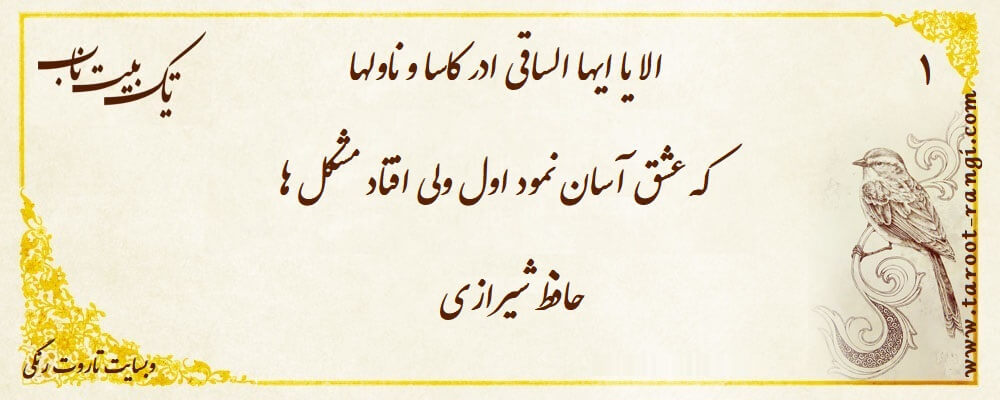 ۱
یک بیت ناب
الا یا ایها الساقی ادر کاسا و ناولها
که عشق آسان نمود اول ولی افتاد مشکل ها
حافظ شیرازی
وبسایت تاروت رنگی
www.taroot-rangi.com